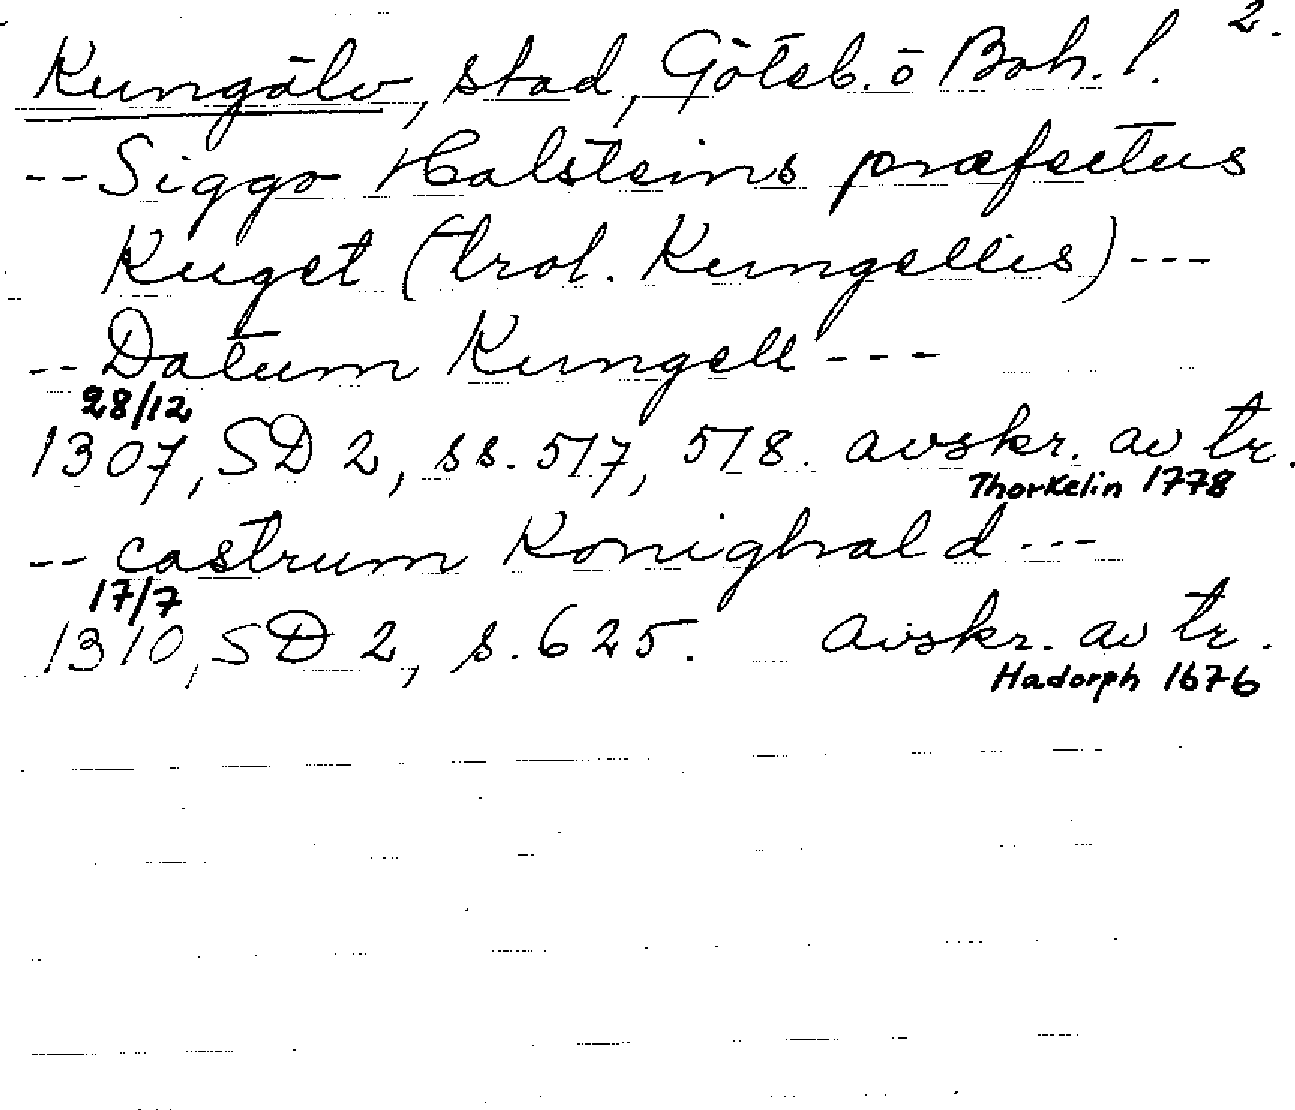 2.
Kungälv, stad, Göteb. o Boh. l.
-- Siggo Halsteins præfectus
Kuget (trol. Kungellis) ---
-- Datum Kungell ---
28/12
1307, SD 2, ss. 517, 518. avskr. av tr.
Thorkelin 1778
-- castrum Konighald ---
17/7
1310, SD 2, s. 625. avskr. av tr.
Hadorph 1676